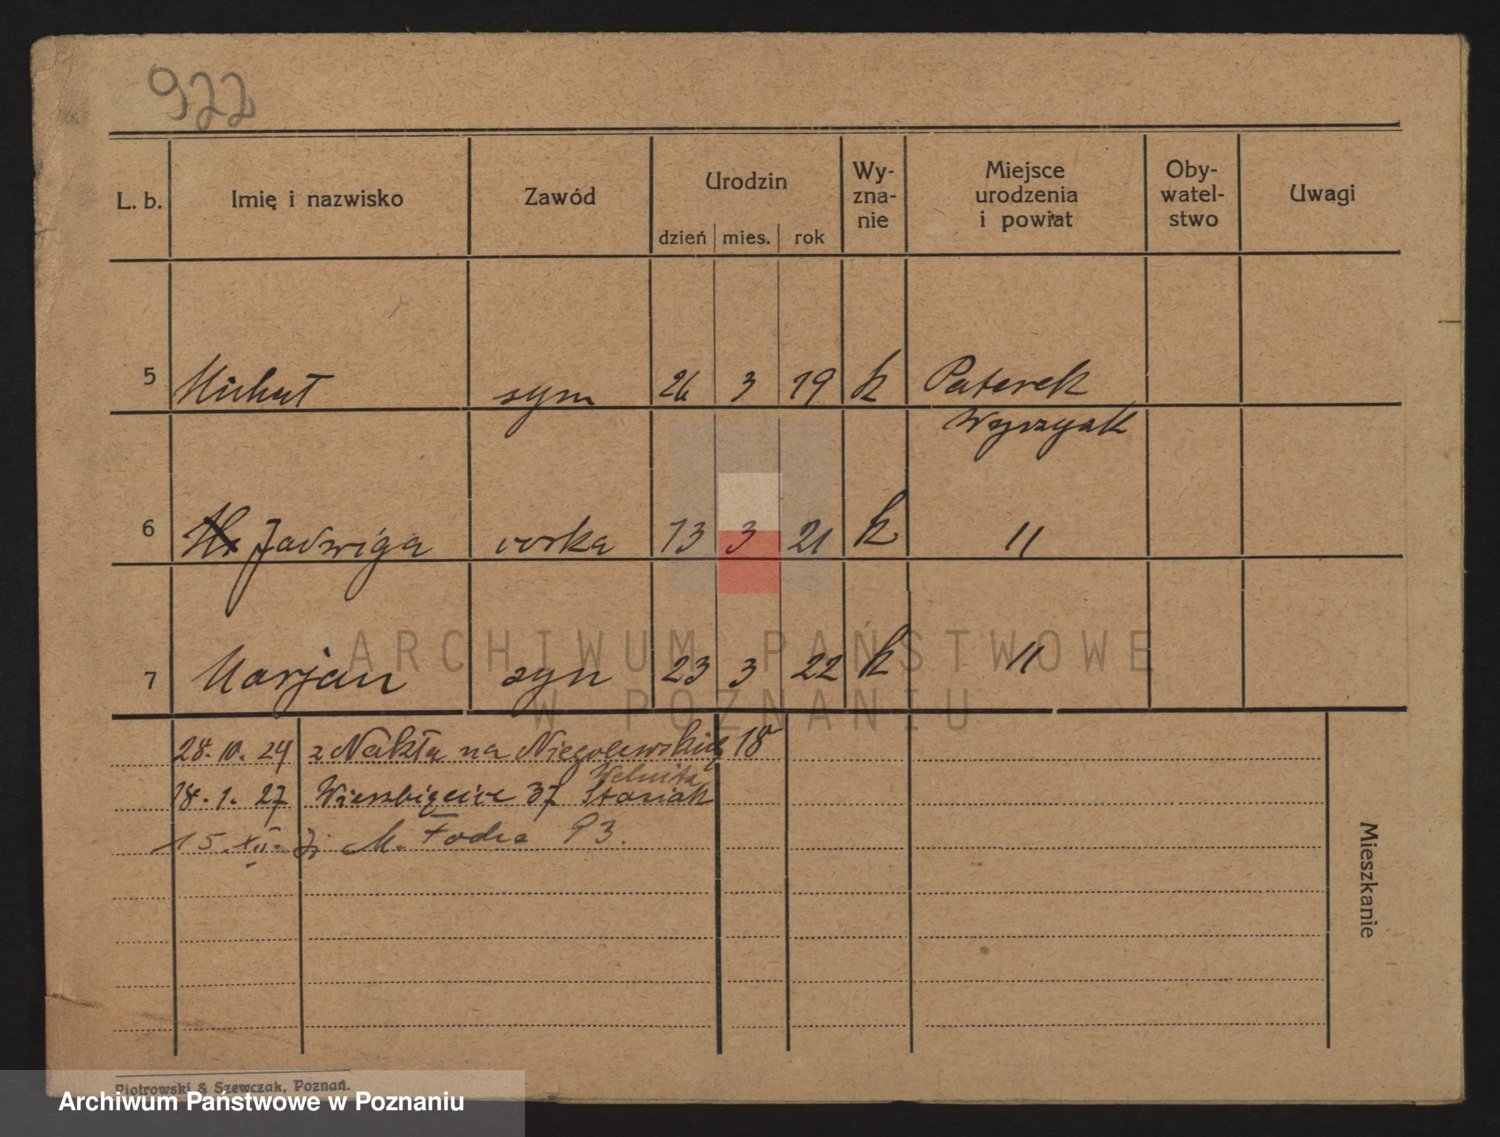 922
L. b. Imię i nazwisko Zawód Urodzin dzień mies. rok Wy-zna-nie Miejsce urodzenia i powiat Oby-watel-stwo Uwagi
5 Michał syn 26 3 19 k Paterek
Wyrzysk
6 Jadwiga corka 13 3 21 k 〃
7 Marjan syn 23 3 22 k 〃
28. 10. 24 z Nakła na Niegolewskich 18
18. 1. 27 Wierzbięcice 37 Stasiak
15. XII. M. Focha 93.
Mieszkanie
Piotrowski & Szewczak, Poznań.
ARCHIWUM PAŃSTWOWE
W POZNANIU
Archiwum Państwowe w Poznaniu